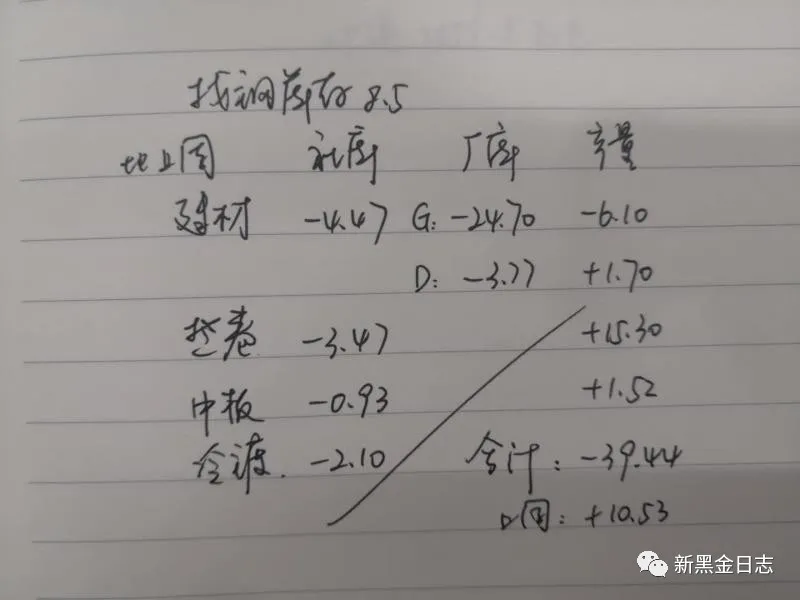 找钢库存 8.5
比上周 社库 厂库 产量
建材 -4.47 G: -24.70 -6.10
D: -3.77 +1.70
热卷 -3.47 +15.30
中板 -0.93 +1.52
冷镀 -2.10 合计: -39.44
上周: +10.53
新黑金日志